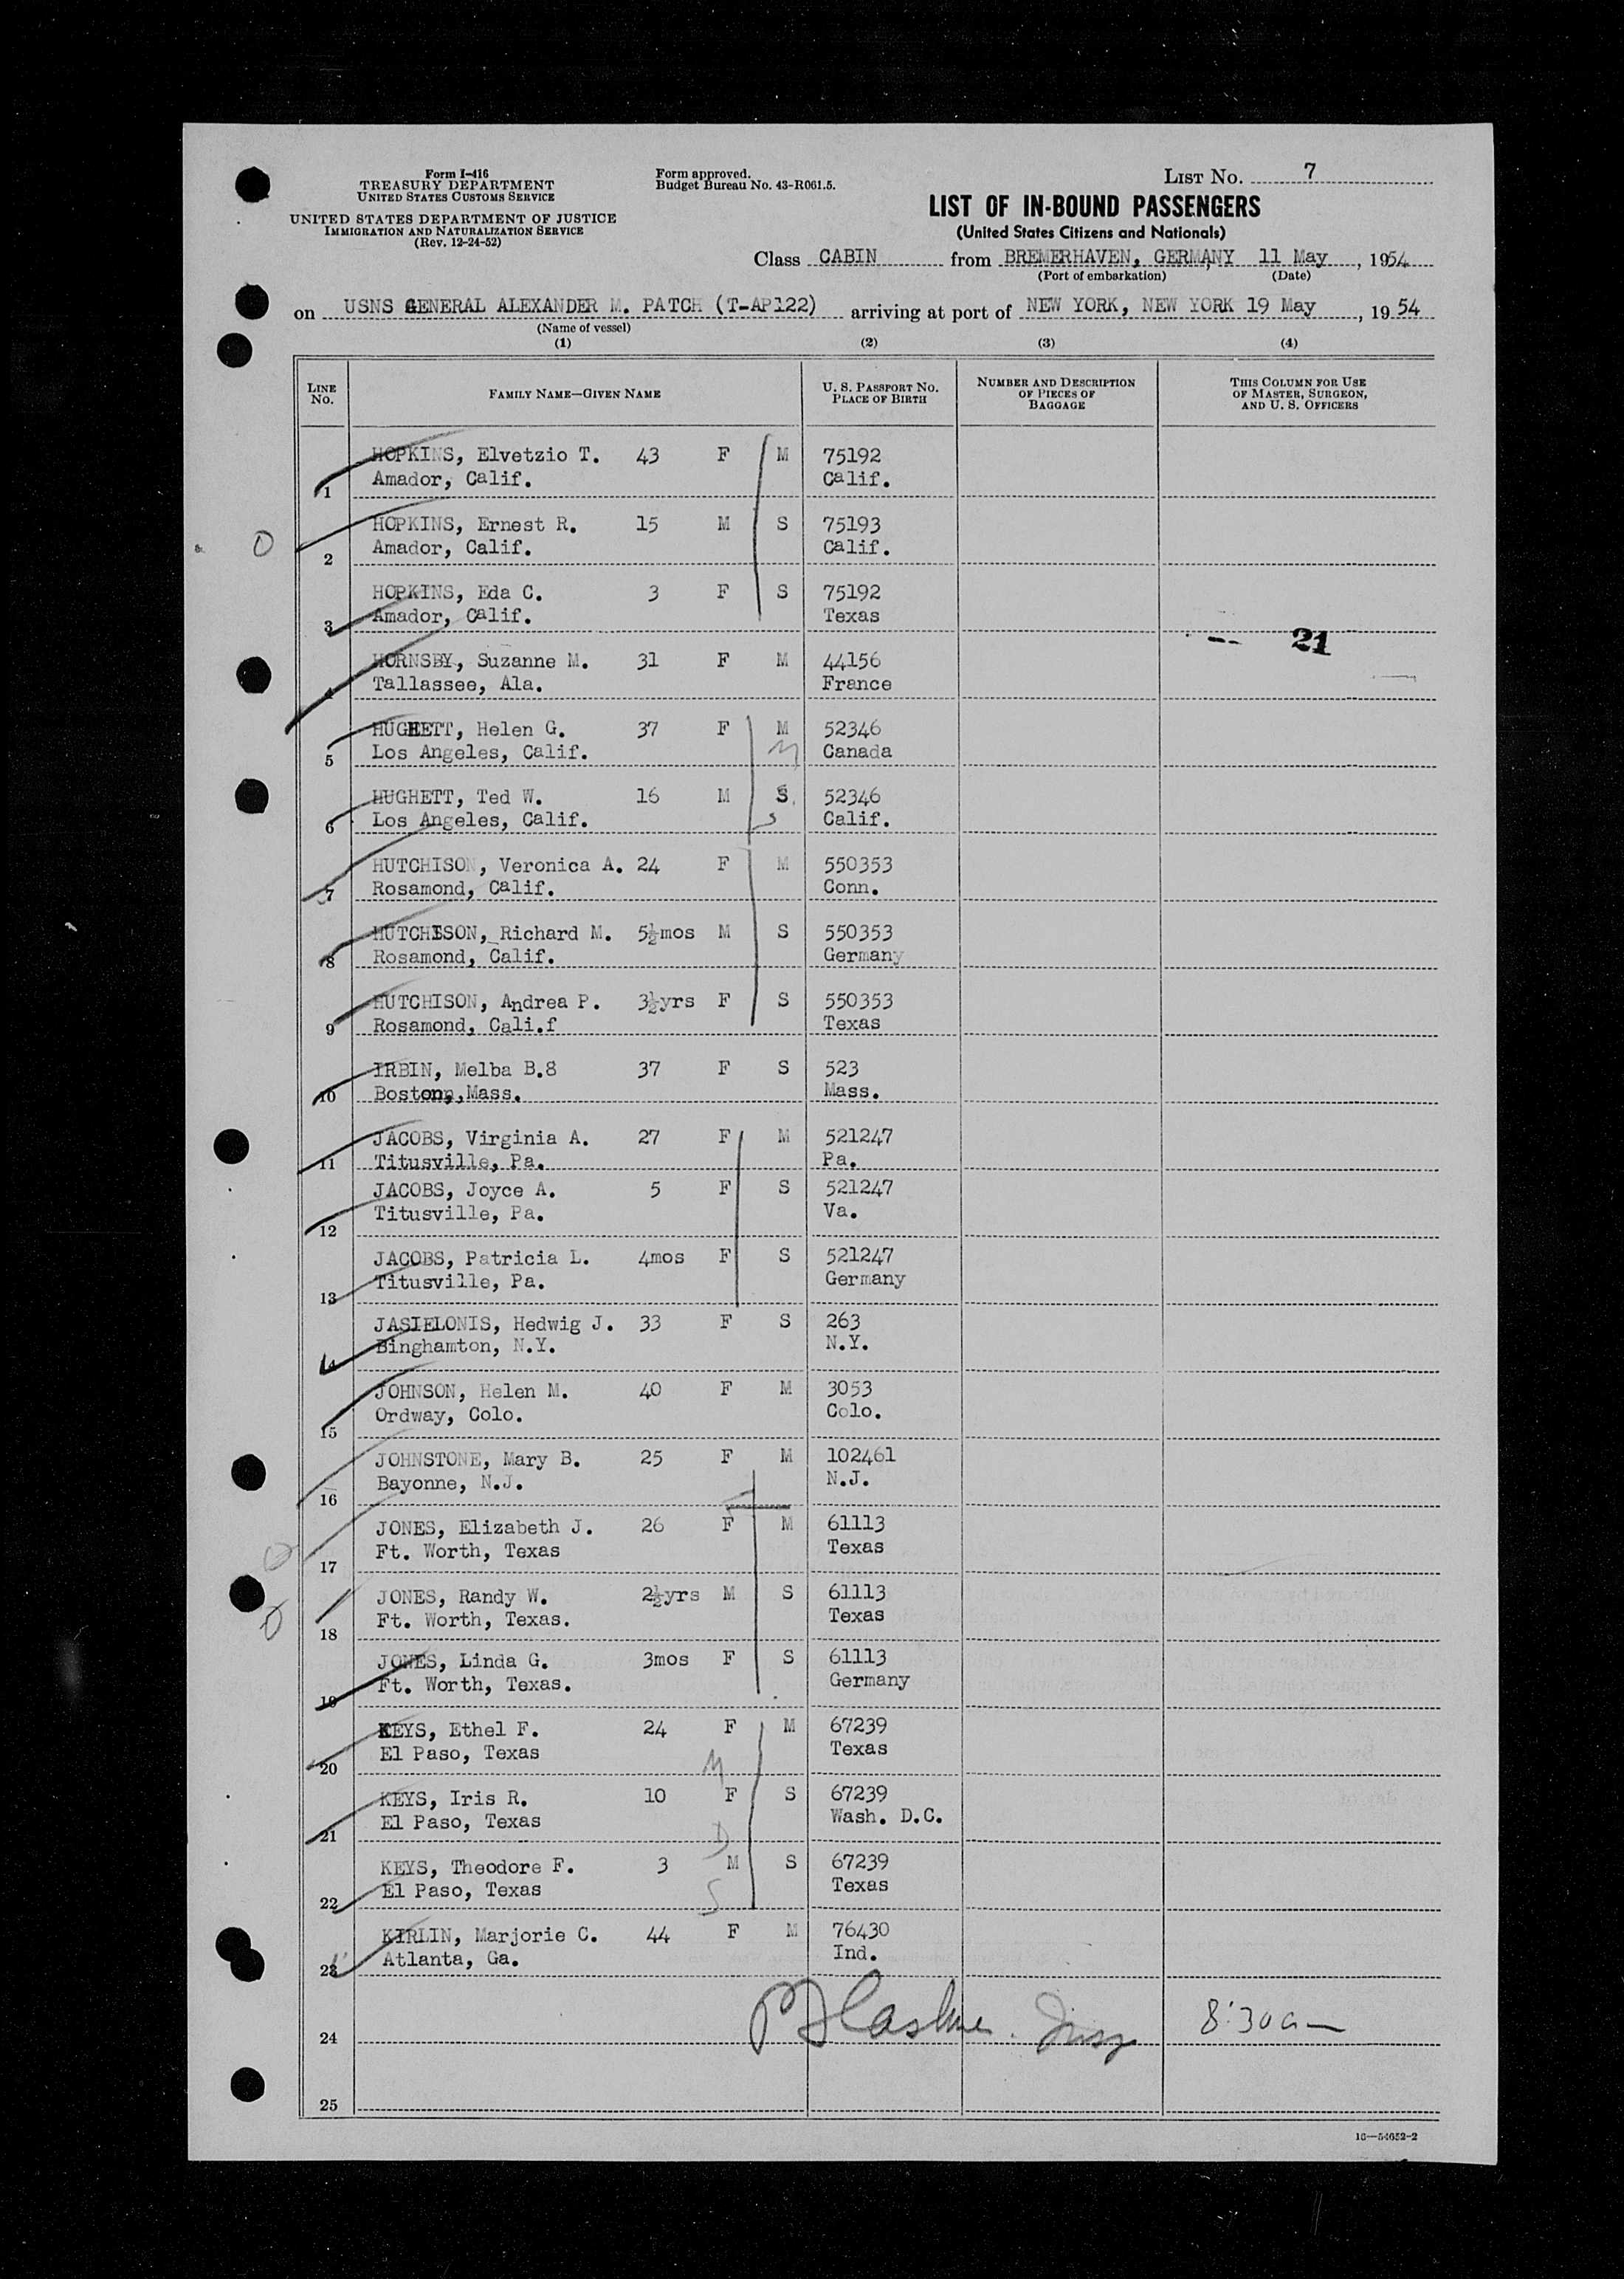 Form I-416
TREASURY DEPARTMENT
UNITED STATES CUSTOMS SERVICE
UNITED STATES DEPARTMENT OF JUSTICE
IMMIGRATION AND NATURALIZATION SERVICE
(Rev. 12-24-52)
Form approved.
Budget Bureau No. 43-R061.5.
LIST NO. 7
LIST OF IN-BOUND PASSENGERS
(United States Citizens and Nationals)
Class CABIN from BREMERHAVEN, GERMANY 11 May, 1954
(Port of embarkation) (Date)
on USNS GENERAL ALEXANDER M. PATCH (T-AP122) arriving at port of NEW YORK, NEW YORK 19 May, 1954
(Name of vessel)
(1) (2) (3) (4)
LINE NO. FAMILY NAME—GIVEN NAME U. S. PASSPORT NO. PLACE OF BIRTH NUMBER AND DESCRIPTION OF PIECES OF BAGGAGE THIS COLUMN FOR USE OF MASTER, SURGEON, AND U. S. OFFICERS
HOPKINS, Elvetzio T. 43 F M 75192
1 Amador, Calif. Calif.
HOPKINS, Ernest R. 15 M S 75193
2 Amador, Calif. Calif.
HOPKINS, Eda C. 3 F S 75192
3 Amador, Calif. Texas
21
HORNSBY, Suzanne M. 31 F M 44156
4 Tallassee, Ala. France
HUGHETT, Helen G. 37 F M 52346
5 Los Angeles, Calif. M Canada
HUGHETT, Ted W. 16 M S 52346
6 Los Angeles, Calif. S Calif.
HUTCHISON, Veronica A. 24 F M 550353
7 Rosamond, Calif. Conn.
HUTCHISON, Richard M. 5½mos M S 550353
8 Rosamond, Calif. Germany
HUTCHISON, Andrea P. 3½yrs F S 550353
9 Rosamond, Cali.f Texas
IRBIN, Melba B.8 37 F S 523
10 Boston,,Mass. Mass.
JACOBS, Virginia A. 27 F M 521247
11 Titusville, Pa. Pa.
JACOBS, Joyce A. 5 F S 521247
12 Titusville, Pa. Va.
JACOBS, Patricia L. 4mos F S 521247
13 Titusville, Pa. Germany
JASIELONIS, Hedwig J. 33 F S 263
14 Binghamton, N.Y. N.Y.
JOHNSON, Helen M. 40 F M 3053
15 Ordway, Colo. Colo.
JOHNSTONE, Mary B. 25 F M 102461
16 Bayonne, N.J. N.J.
JONES, Elizabeth J. 26 F M 61113
17 Ft. Worth, Texas Texas
JONES, Randy W. 2½yrs M S 61113
18 Ft. Worth, Texas. Texas
JONES, Linda G. 3mos F S 61113
19 Ft. Worth, Texas. Germany
KEYS, Ethel F. 24 F M 67239
20 El Paso, Texas M Texas
KEYS, Iris R. 10 F S 67239
21 El Paso, Texas D Wash. D.C.
KEYS, Theodore F. 3 M S 67239
22 El Paso, Texas S Texas
KIRLIN, Marjorie C. 44 F M 76430
23 Atlanta, Ga. Ind.
24 8:30am
25
16—54652-2